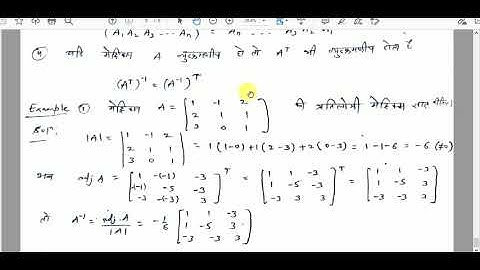 (A₁ A₂ A₃ ... Aₙ) = Aₙ ... A₃ A₂ A₁
④ यदि मैट्रिक्स A व्युत्क्रमणीय हो तो Aᵀ भी व्युत्क्रमणीय होता है
(Aᵀ)⁻¹ = (A⁻¹)ᵀ
Example ① मैट्रिक्स A = [1 -1 2; 2 1 1; 3 0 1] की प्रतिलोमी मैट्रिक्स ज्ञात कीजिए।
Solⁿ: |A| = |1 -1 2; 2 1 1; 3 0 1| = 1(1-0)+1(2-3)+2(0-3) = 1-1-6 = -6 (≠0)
अब adj. A = [1 -(-1) -3; -(-1) -5 -3; -3 -(-3) 3]ᵀ = [1 1 -3; 1 -5 -3; -3 3 3]ᵀ = [1 1 -3; 1 -5 3; -3 -3 3]
तो A⁻¹ = adj. A / |A| = -1/6 [1 1 -3; 1 -5 3; -3 -3 3]